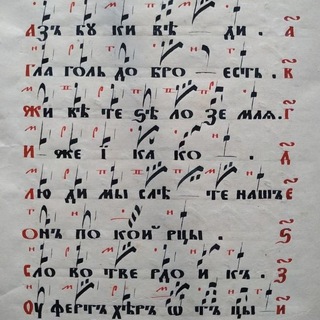 АЗЪ БУ КИ ВѢ ДИ. А
ГЛА ГОЛЬ ДО БРО ЕСТЬ. В
ЖИ ВѢ ТЕ ЅѢ ЛО ЗЕ МЛѦ. Г
И ЖЕ І КА КО. Д
ЛЮ ДИ МЫ СЛѢ ТЕ НАШЪ Е
ОНЪ ПО КОЙ РЦЫ. Ѕ
СЛО ВО ТВЕ РДО И КЪ. З
ОУ ФЕРТЪ ХѢРЪ Ѡ ТЪ ЦЫ И